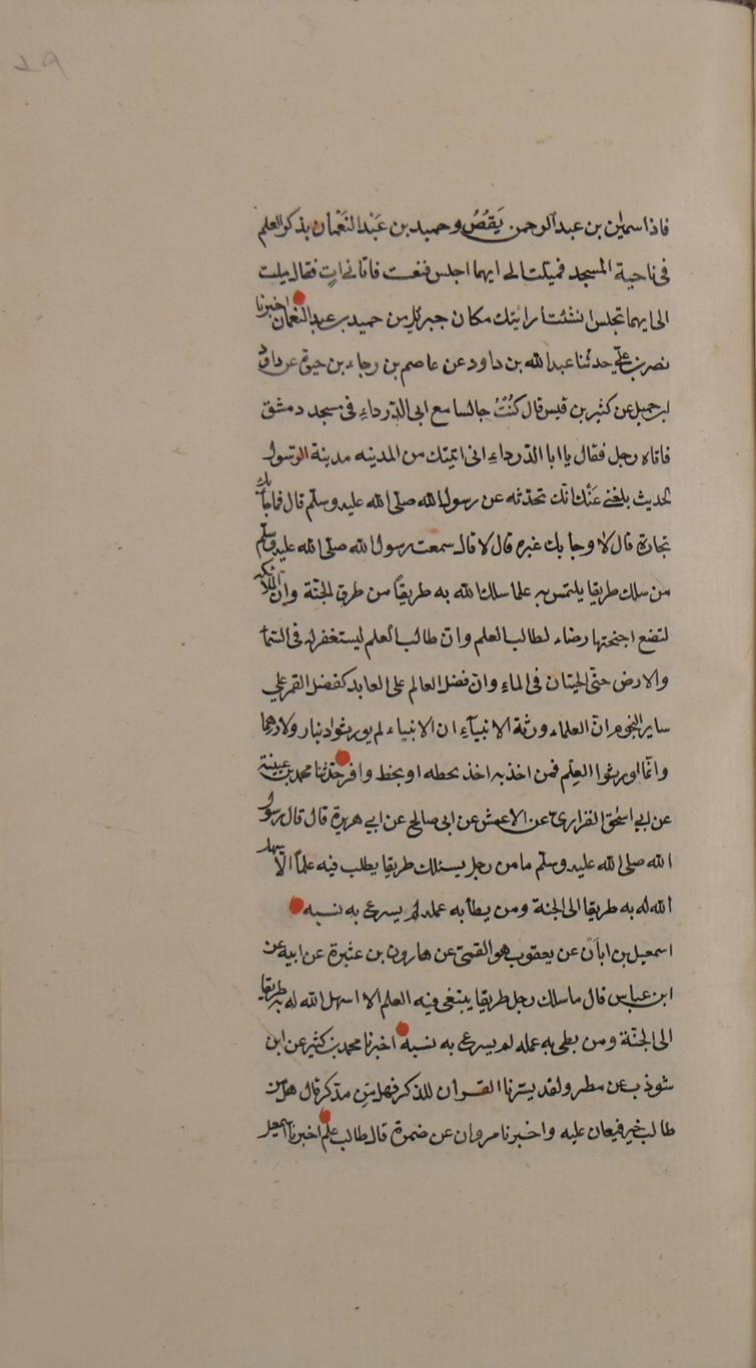 فاذا سمين بن عبد الرحمن يَقُصُّ وحميد بن عَبْد النعْمان يذكر العلم
فى ناحية المسجد فميلت الى ايهما اجلس فنعست فاتانى ات فقال ميلت
الى ايهما تجلس ان شئت اريتك مكان جبرئل من حميد بن عبد النعمان اخبرنا
نصر بن على حدثنا عبد الله بن داود عن عاصم بن رجاء بن حيوة عن داود
بن جميل عن كثير بن قيس قال كُنْتُ جالسا مع ابى الدرداء فى مسجد دمشق
فاتاه رجل فقال يا ابا الدرداء انى اتيتك من المدينه مدينة الرسول
لحديث بلغنى عَنْك انّك تحدّثه عن رسول الله صلى الله عليه وسلم قال فما جاَ بك
تجارة قال لا ولا جا بك غيره قال لا قال سمعت رسول الله صلى الله عليه وسلم
من سلك طريقا يلتمس به علما سلك الله به طريقاً من طرق الجنّة وان الملائكه
لتضع اجنحتها رضاء لطالب العلم وانّ طالب العلم ليستغفر له من فى السّما
والارض حتّى الحيتان فى الماء وان فضل العالم على العابد كفضل القمر على
ساير النجوم انّ العلماء ورثة الانبيآء ان الانبياء لم يورثوا دينار ولا درهما
وانّما اورثوا العِلْم فمن اخذ به اخذ بحطه او بحظ وافر حدثنا محمد بن عيينة
عن ابى اسحٰق الفزارى عن الاعمش عن ابى صالح عن ابى هريرة قال قال رسول
الله صلى الله عليه وسلم ما من رجل يسلك طريقا يطلب فيه علماً الّا سهل
الله له به طريقا الى الجنة ومن يبطأ به عمله لم يسرع به نسبه
اسمعيل بن ابان عن يعقوب هو القمّى عن هارون بن عنترة عن ابيه عن
ابن عباس قال ما سلك رجل طريقا يبتغى فيه العلم الا سهل الله له به طريقا
الى الجنّة ومن يبطى به عمله لم يسرع به نسبه اخبرنا محمد بن كثير عن ابن
شوذب عن مطر ولقد يسّرنا القرآن للذكر فهل من مدّكر قال هل من
طالب خير فيعان عليه واخبرنا مروان عن ضمرة قال طالب علم اخبرنا اسمعيل